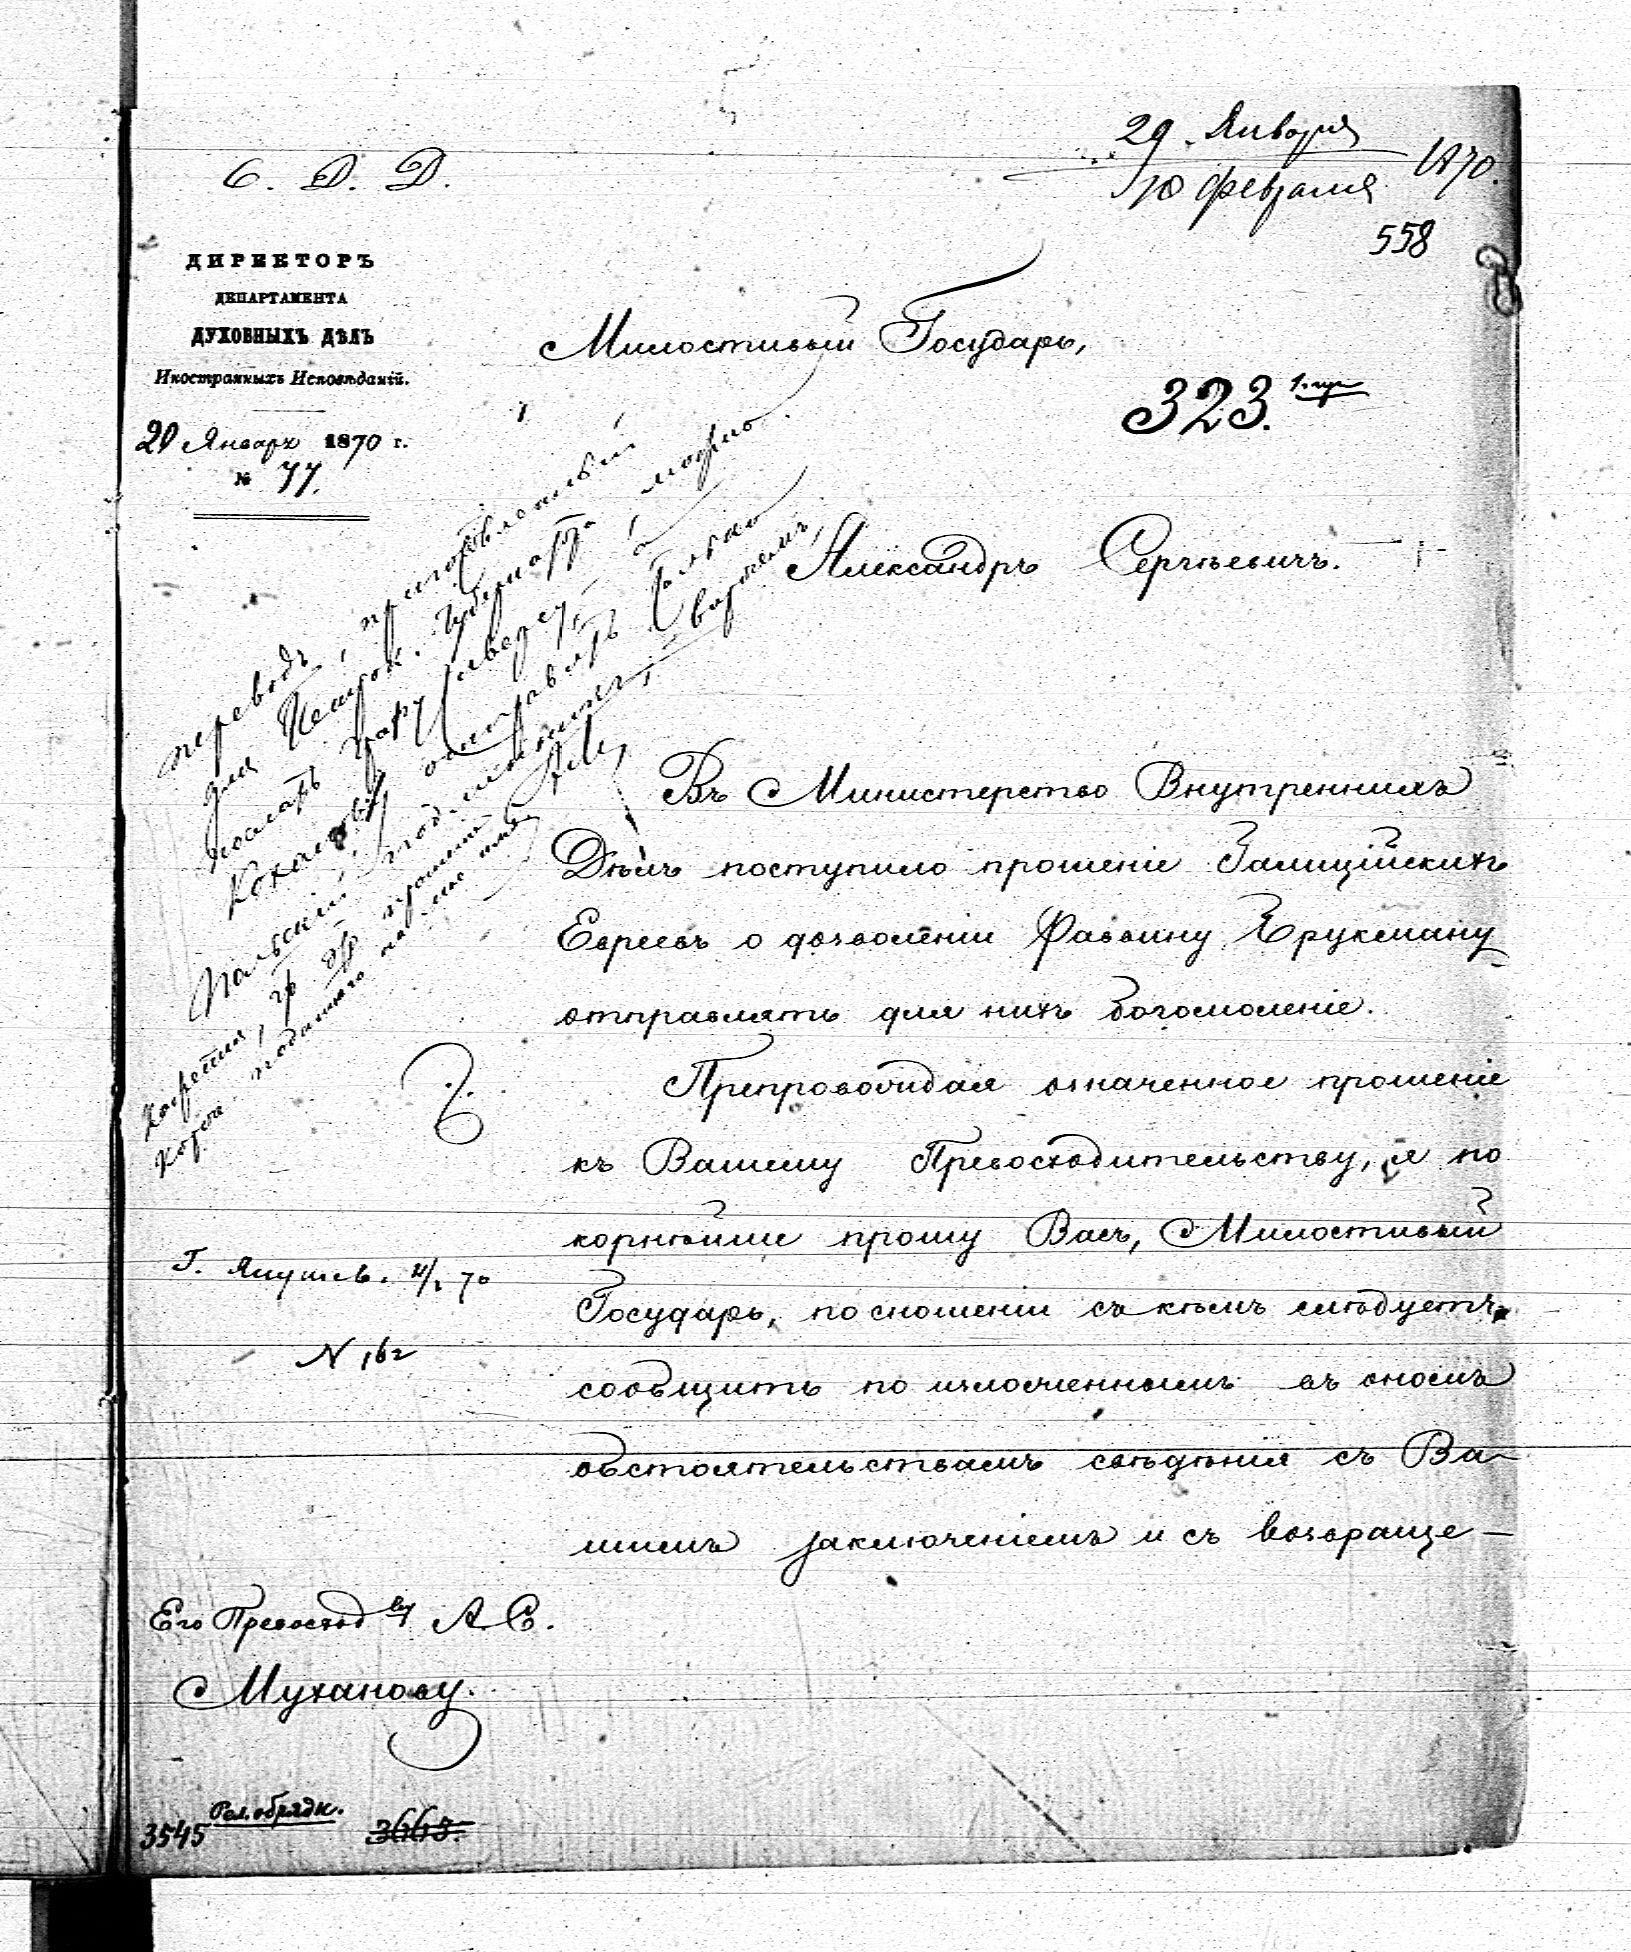 29 Января
10 Февраля 1870.
558
С. Д. Д.
ДИРЕКТОРЪ
ДЕПАРТАМЕНТА
ДУХОВНЫХЪ ДѢЛЪ
Иностранныхъ Исповѣданій.
20 Января 1870 г.
№ 77.
Милостивый Государь,
323.
Александръ Сергѣевичъ.
переводъ, приготовленный
для Петрок. Губернатора,
послать
Въ Министерство Внутреннихъ
Дѣлъ поступило прошеніе Галиційскихъ
Евреевъ о дозволеніи Раввину Бруксману
отправлять для нихъ богомоленіе.
Препровождая означенное прошеніе
къ Вашему Превосходительству, я по
корнѣйше прошу Васъ, Милостивый
Государь, по сношеніи съ кѣмъ слѣдуетъ,
сообщить по изложеннымъ въ ономъ
обстоятельствамъ свѣдѣнія съ Ва-
шимъ заключеніемъ и съ возвраще-
N 162
Его Превосход ву А. С.
Муханову.
Рел. обрядн.
3545 3665.